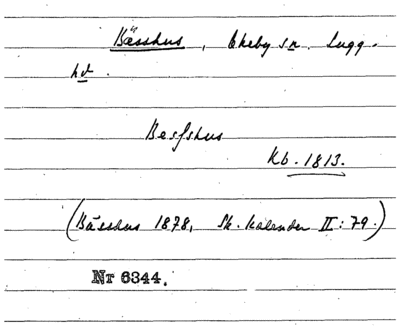 Bässhus, Ekeby sn. Lugg.
hd.
Besshus
Kb. 1813.
(Bässhus 1878, Sk. kalender II: 79.)
Nr 6344.